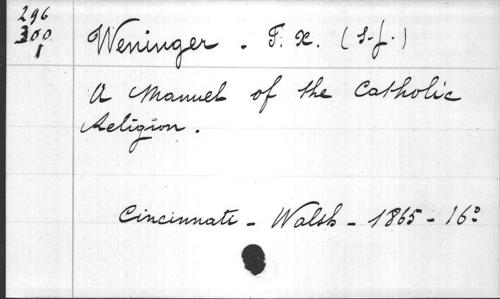 296
300
1
Weninger - F. X. (s.j.)
A Manuel of the Catholic
Religion.
Cincinnati - Walsh - 1865 - 16º